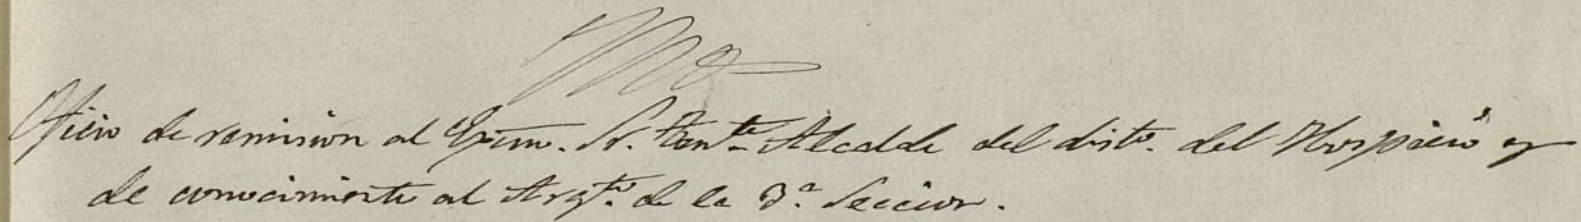 Oficio de remision al Excmo. Sr. Tente. Alcalde del disto. del Hospicio y
de conocimiento al Arqto. de la 3ª Seccion.